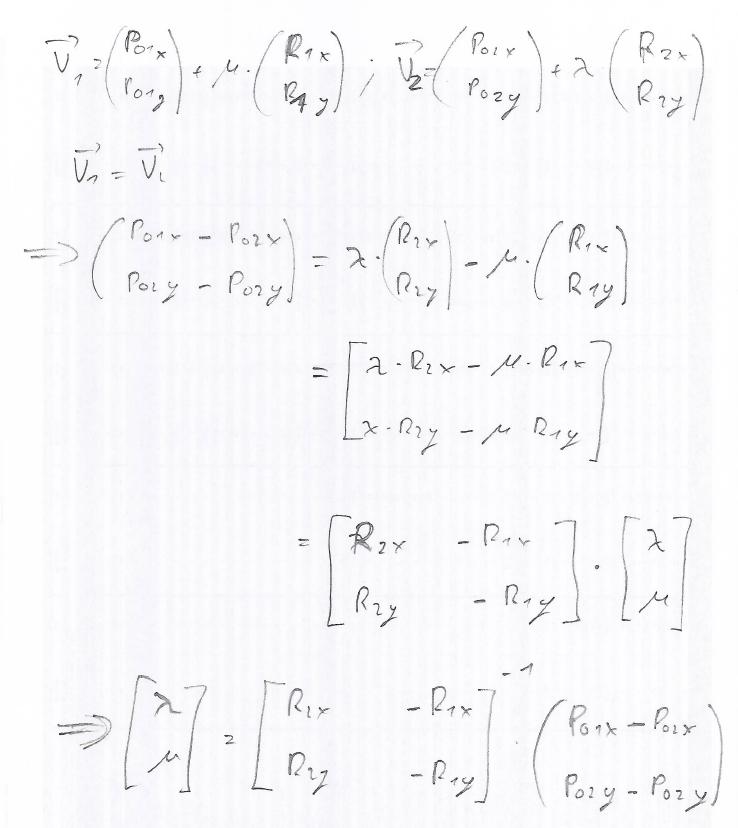 V⃗₁ = (P₀₁ₓ / P₀₁y) + μ · (R₁ₓ / R₁y) ; V⃗₂ = (P₀₂ₓ / P₀₂y) + λ (R₂ₓ / R₂y)
V⃗₁ = V⃗₂
⇒ (P₀₁ₓ - P₀₂ₓ / P₀₂y - P₀₂y) = λ · (R₂ₓ / R₂y) - μ · (R₁ₓ / R₁y)
= [λ · R₂ₓ - μ · R₁ₓ / λ · R₂y - μ R₁y]
= [R₂ₓ -R₁ₓ / R₂y -R₁y] · [λ / μ]
⇒ [λ / μ] = [R₂ₓ -R₁ₓ / R₂y -R₁y]⁻¹ · (P₀₁ₓ - P₀₂ₓ / P₀₂y - P₀₂y)